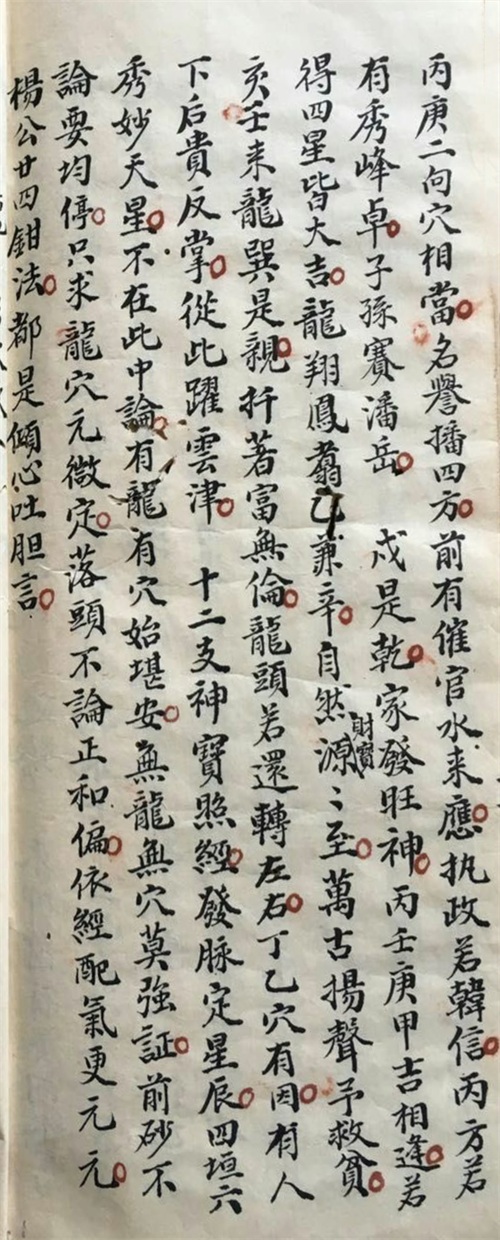 丙庚二向穴相當名譽播四方前有催官水来應执政若韓信丙方若
有秀峰卓子孫賽潘岳　戌是乾家發旺神丙壬庚甲吉相逢若
得四星皆大吉龍翔鳳翥乙兼辛自然財寶源〻至萬古揚聲予救貧
亥壬来龍巽是親扦著富無倫龍頭若還轉左右丁乙穴有因有人
下后貴反掌從此躍雲津　十二支神寶照經發脉定星辰四垣六
秀妙天星不在此中論有龍有穴始堪安無龍無穴莫強証前砂不
論要均停只求龍穴元微定落頭不論正和偏依經配氣更元元
楊公廿四鉗法都是傾心吐胆言